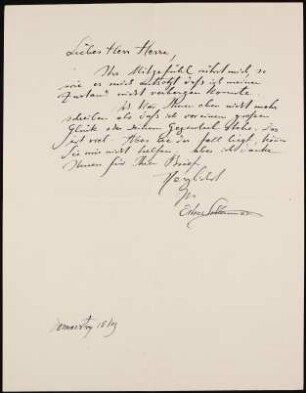 Lieber Herr Herre,
Ihr Mitgefühl rührt mich, so
wie es mich schätzt daß ich meinen
Zustand nicht verbergen konnte.
ich kann Ihnen eben nicht mehr
schreiben als daß ich vor einem großen
Glück oder dessen Gegenteil stehe. Das
ist viel. Aber wie der Fall liegt, können
Sie mir nicht helfen, aber ich danke
Ihnen für Ihren Brief.
Herzlichst
Ihr
Donnerstag